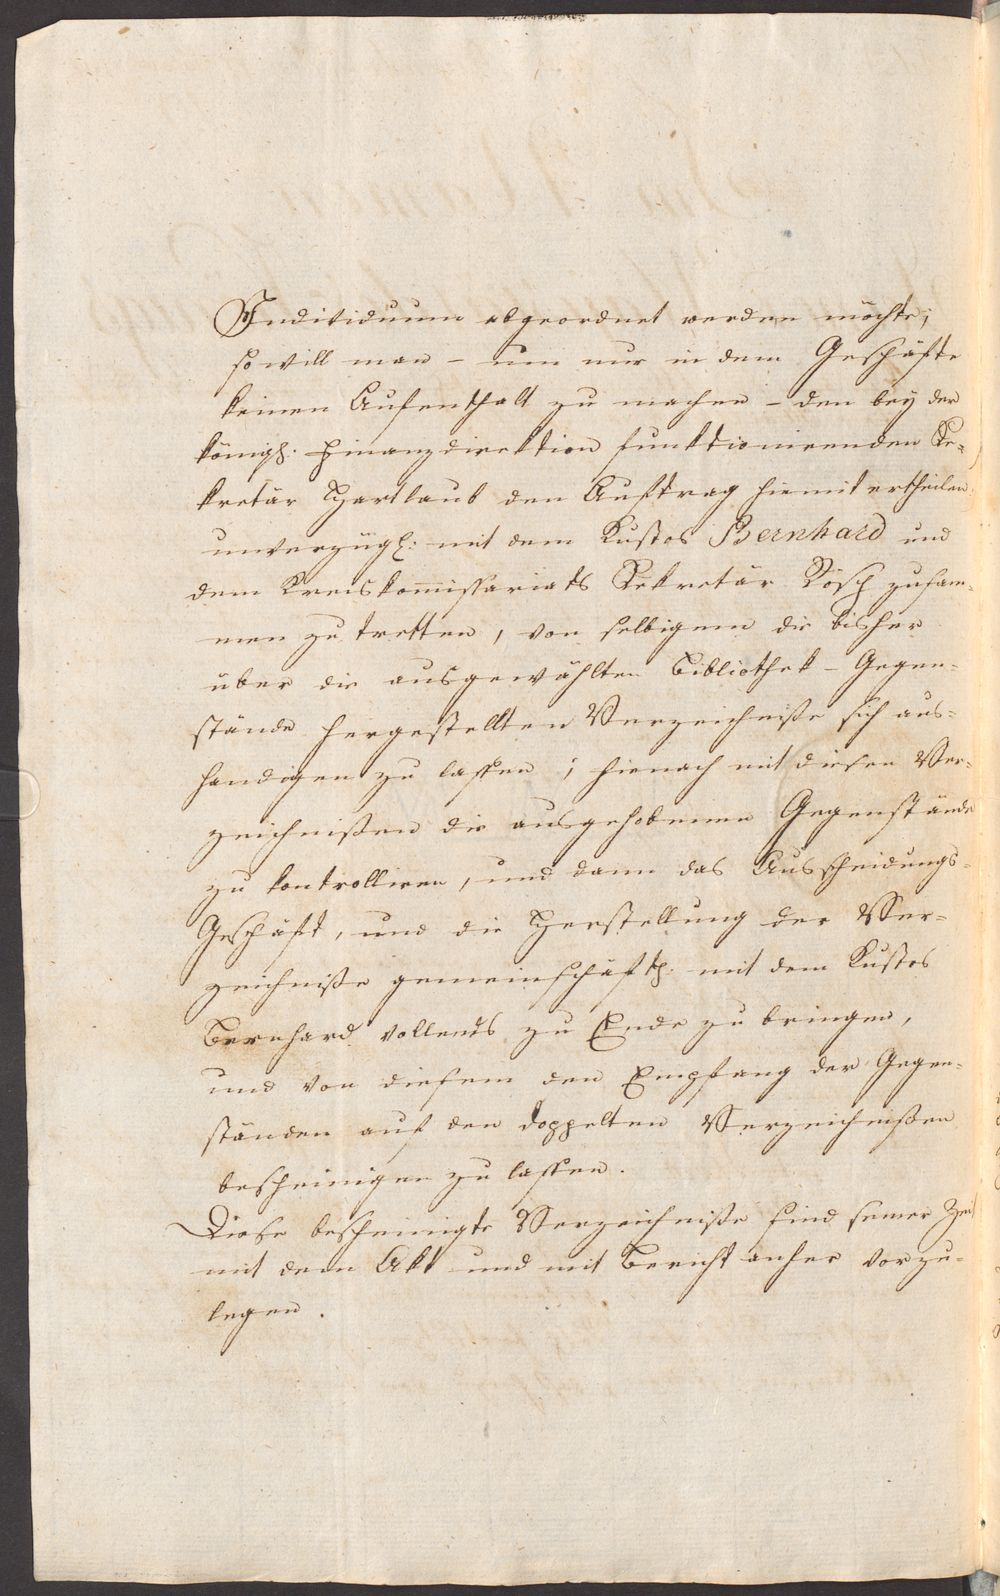 Individuum abgeordnet werden möchte;
so will man – um nur in dem Geschäfte
keinen Aufenthalt zu machen – den bey der
königl. Finanzdirektion funktionirenden Se-
kretär Hartlaub den Auftrag hiemit ertheilen
unverzügl: mit dem Kustos Bernhard und
dem Kreiskom̄issariats Sekretär Rösch zusam-
men zu tretten, von selbigem die bisher
über die ausgewählten Bibliothek-Gegen-
stände hergestellten Verzeichniße sich aus-
handigen zu lassen; hienach mit diesen Ver-
zeichnißen die ausgehobenen Gegenstände
zu kontrolliren, und dann das Ausscheidungs-
Geschäft, und die Herstellung der Ver-
zeichniße gemeinschäftl. mit dem Kustos
Bernhard vollends zu Ende zu bringen,
und von diesem den Empfang der Gegen-
ständen auf den doppelten Verzeichnißen
bescheinigen zu lassen.
Diese bescheinigte Verzeichniße sind seiner Zeit
mit dem Akt und mit Bericht anher vorzu-
legen.